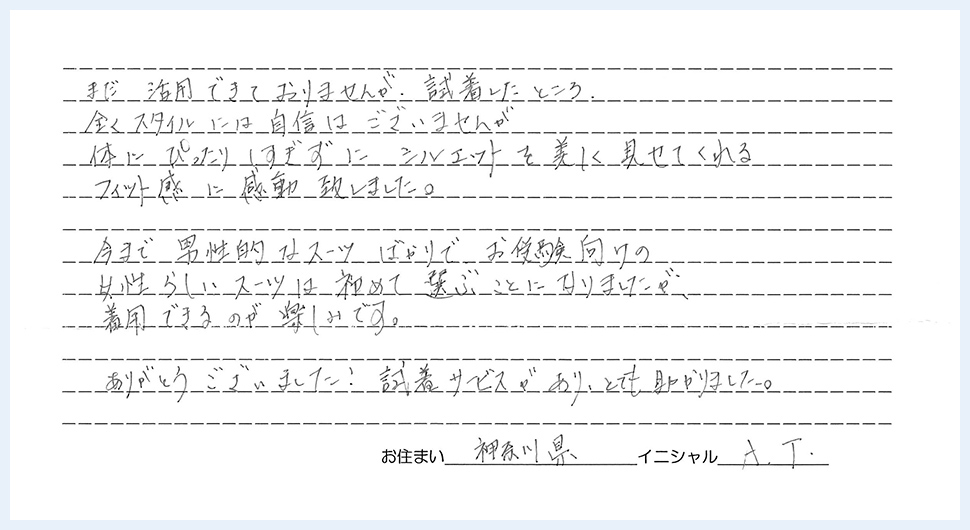 まだ 活用できておりませんが、試着したところ、
全くスタイルには自信はございませんが
体にぴったりしすぎずに シルエットを美しく見せてくれる
フィット感に感動致しました。
今まで 男性的なスーツ ばかりで お受験向けの
女性らしい スーツは 初めて 選ぶことになりましたが、
着用できるのが 楽しみです。
ありがとうございました! 試着サービスがあり、とても助かりました。
お住まい 神奈川県 イニシャル A.T.